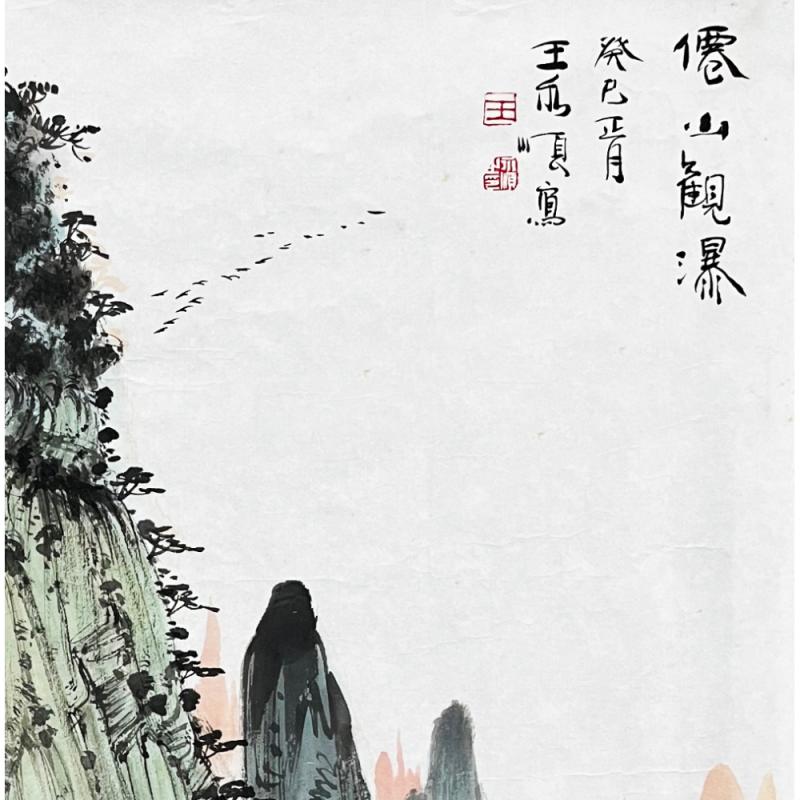 僊山觀瀑
癸巳正月
王永順寫
王